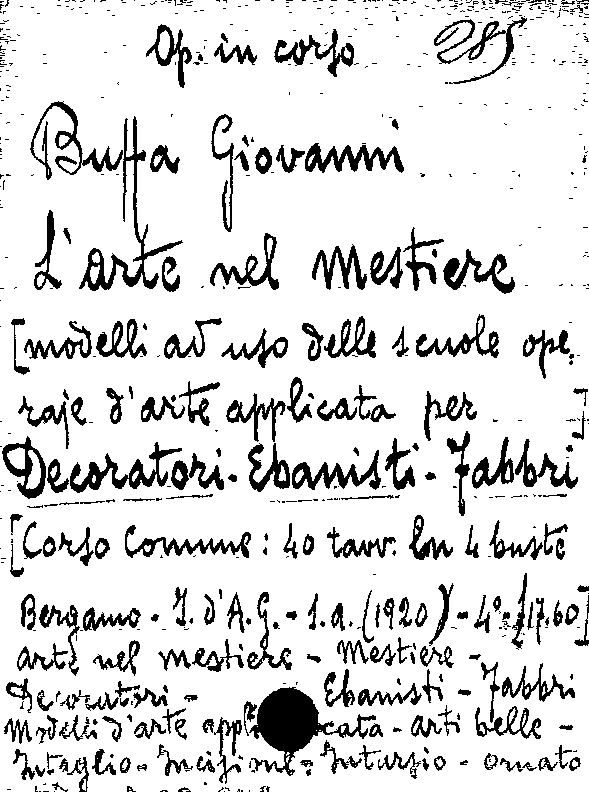 Op. in corso 285
Buffa Giovanni
L'arte nel mestiere
[modelli ad uso delle scuole ope,
raje d'arte applicata per ]
Decoratori - Ebanisti - Fabbri
[Corso Comune: 40 tavv. in 4 buste
Bergamo - I. d'A.G. - s.a. (1920) - 4º - £17.60]
arte nel mestiere - Mestiere -
Decoratori - Ebanisti - Fabbri
Modelli d'arte applicata - arti belle -
Intaglio - Incisione - Intarsio - ornato